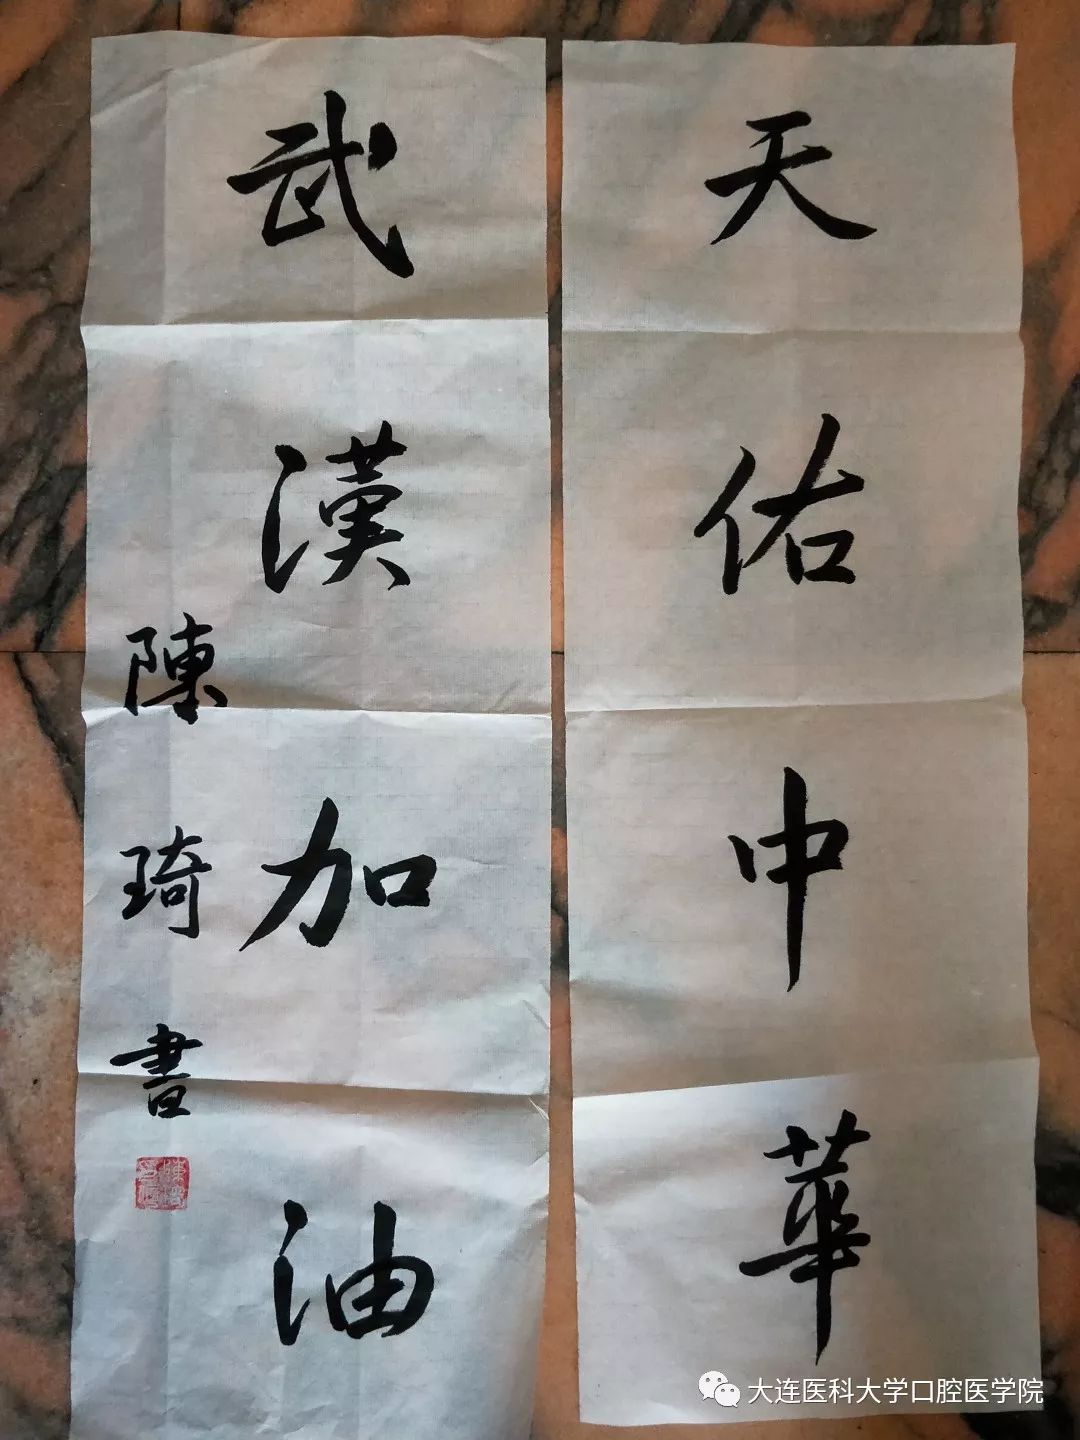 天佑中華
武漢加油
陳琦書
大连医科大学口腔医学院